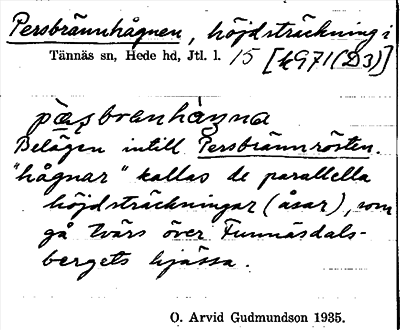 Persbrännhågnen, höjdsträckning i
Tännäs sn, Hede hd, Jtl. l. 15 [k971(D3)]
pä̀ʂbranhàŋna
Belägen intill Persbrännrösten.
"hågnar" kallas de parallella
höjdsträckningar (åsar), som
gå tvärs över Funnäsdals-
bergets hjässa.
O. Arvid Gudmundson 1935.